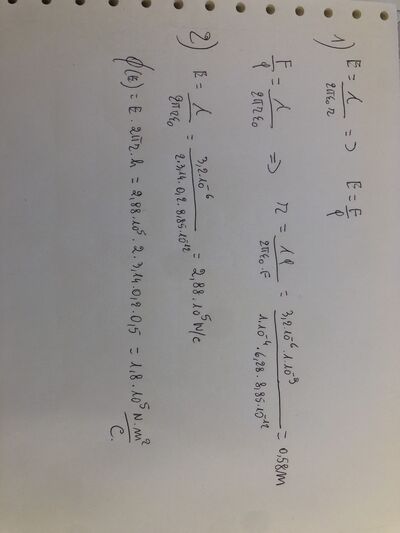 1) E = λ / 2πε₀r => E = F/q
F/q = λ / 2πrε₀ => r = λq / 2πε₀·F = 3,2·10⁻⁶·1·10⁻⁹ / 1·10⁻⁴·6,28·8,85·10⁻¹² = 0,58m
2) E = λ / 2πrε₀ = 3,2·10⁻⁶ / 2·3,14·0,2·8,85·10⁻¹² = 2,88·10⁵ N/C
φ(E) = E·2πr·h = 2,88·10⁵·2·3,14·0,2·0,5 = 1,8·10⁵ N·m²/C.